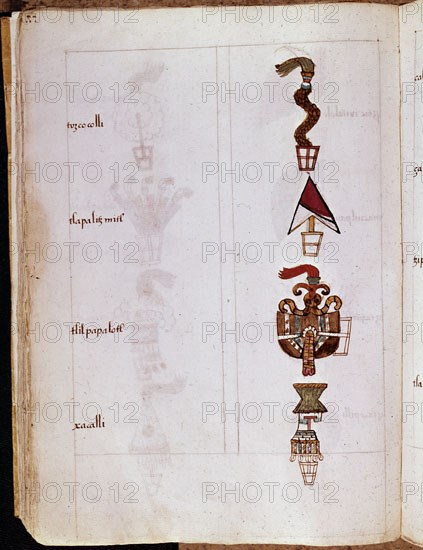 tozcocolli
tlapalitzmitl
tlilpapalotl
xacalli
PHOTO 12